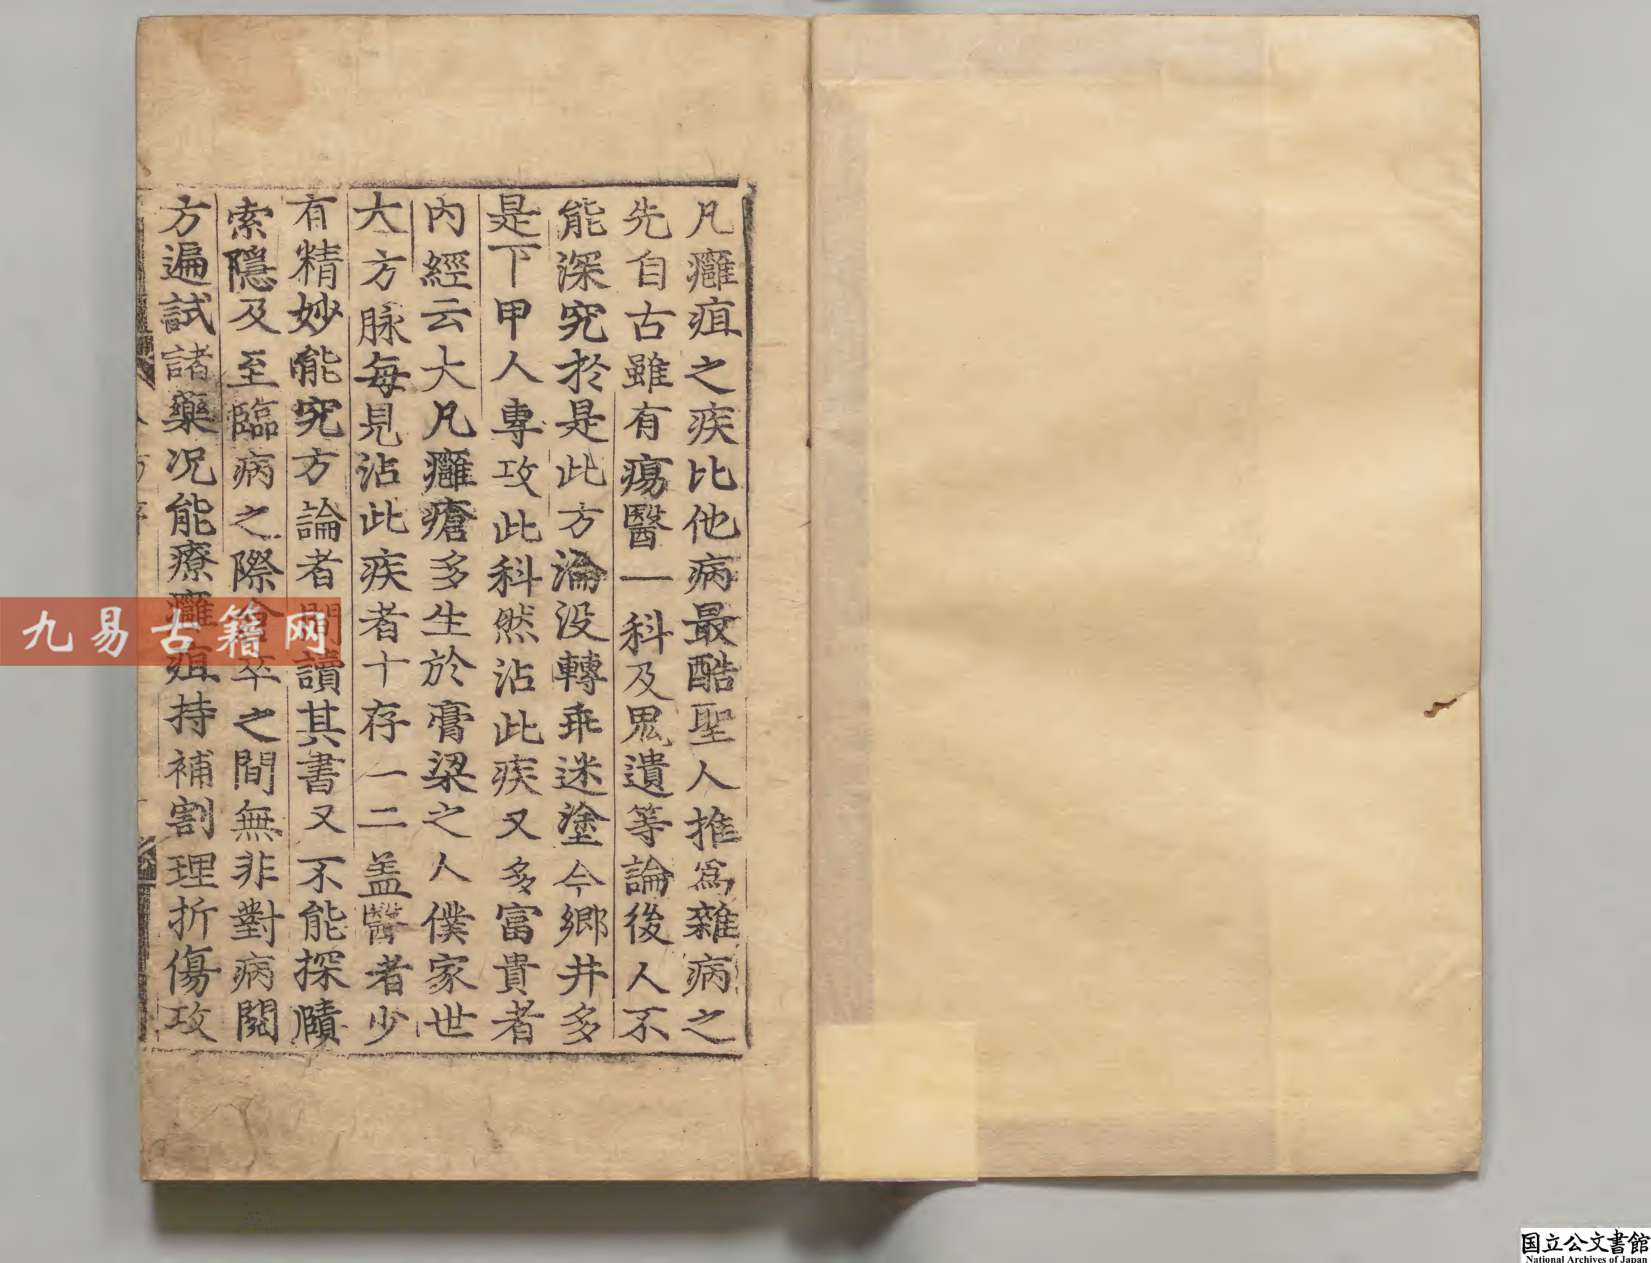 凡癰疽之疾比他病最酷聖人推爲雜病之
先自古雖有瘍醫一科及鬼遺等論後人不
能深究於是此方淪没轉乖迷塗今鄉井多
是下甲人專攻此科然沾此疾又多富貴者
內經云大凡癰瘡多生於膏梁之人僕家世
大方脉每見沾此疾者十存一二盖醫者少
有精妙能究方論者間讀其書又不能探賾
索隱及至臨病之際倉卒之間無非對病閱
方遍試諸藥况能療癰疽持補割理折傷攻
九易古籍网
国立公文書館
National Archives of Japan